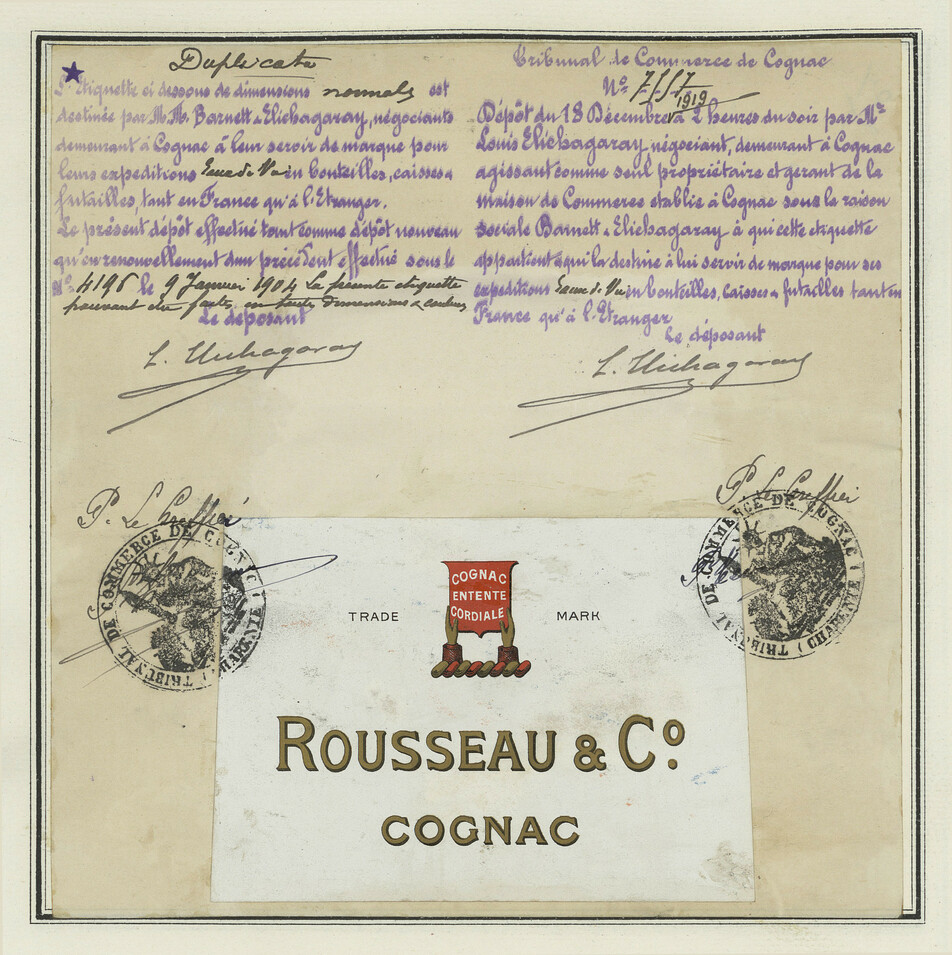 Duplicata
L'Etiquette ci dessous de dimensions normales est
destinée par M.M. Barnett & Elichagaray, négociants
demeurant à Cognac à leur servir de marque pour
leurs expeditions Eaux de Vie en bouteilles, caisses &
futailles, tant en France qu'à l'Etranger.
Le présent dépôt effectué tant comme dépôt nouveau
qu'en renouvellement d'un précédent effectué sous le
N° 4196 le 9 Janvier 1904 La présente étiquette
pouvant être faite, en toutes dimensions & couleurs
Le déposant
L. Elichagaray
Tribunal de Commerce de Cognac
N° 7557
1919
Dépôt du 18 Décembre à 2 heures du soir par Mr
Louis Elichagaray, négociant, demeurant à Cognac
agissant comme seul propriétaire et gerant de la
maison de Commerce etablie à Cognac sous la raison
sociale Barnett & Elichagaray à qui cette etiquette
appartient & qui la destine à lui servir de marque pour ses
expeditions Eaux de Vie en bouteilles, caisses & futailles tant en
France qu'à l'Etranger
Le déposant
L. Elichagaray
P. Le Greffier
TRIBUNAL DE COMMERCE DE COGNAC (CHARENTE)
P. Le Greffier
TRIBUNAL DE COMMERCE DE COGNAC (CHARENTE)
COGNAC
ENTENTE
CORDIALE
TRADE MARK
ROUSSEAU & Cº.
COGNAC